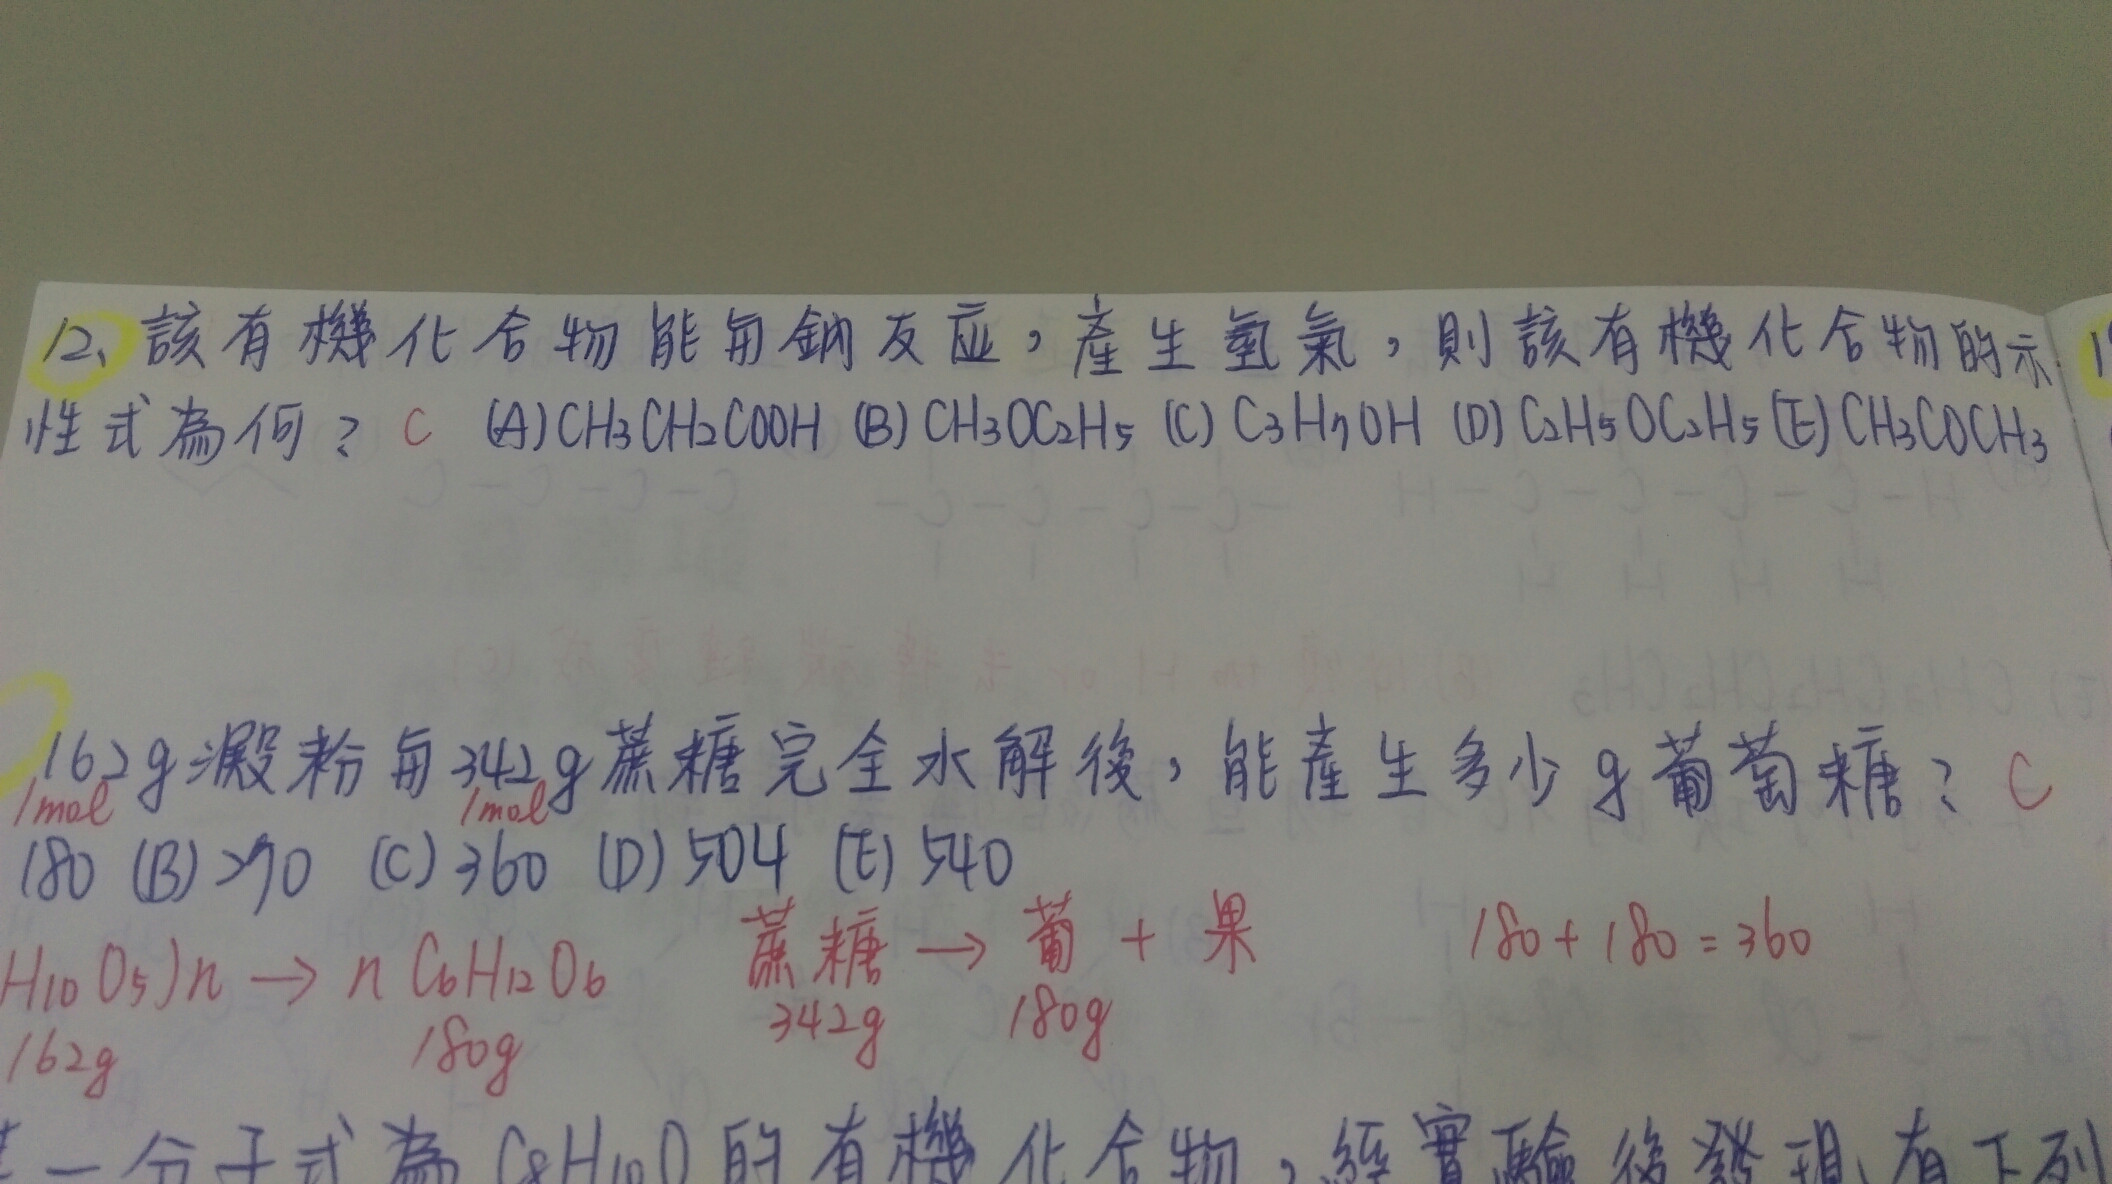 12、該有機化合物能與鈉反应，產生氫氣，則該有機化合物的示
性式為何？ C (A)CH3CH2COOH (B)CH3OC2H5 (C)C3H7OH (D)C2H5OC2H5 (E)CH3COCH3
162g澱粉與342g蔗糖完全水解後，能產生多少g葡萄糖？ C
1mol 1mol
180 (B)270 (C)360 (D)504 (E)540
H10O5)n → nC6H12O6 蔗糖 → 葡 + 果 180+180=360
162g 180g 342g 180g
一分子式為C8H10O的有機化合物，經實驗後發現有下列